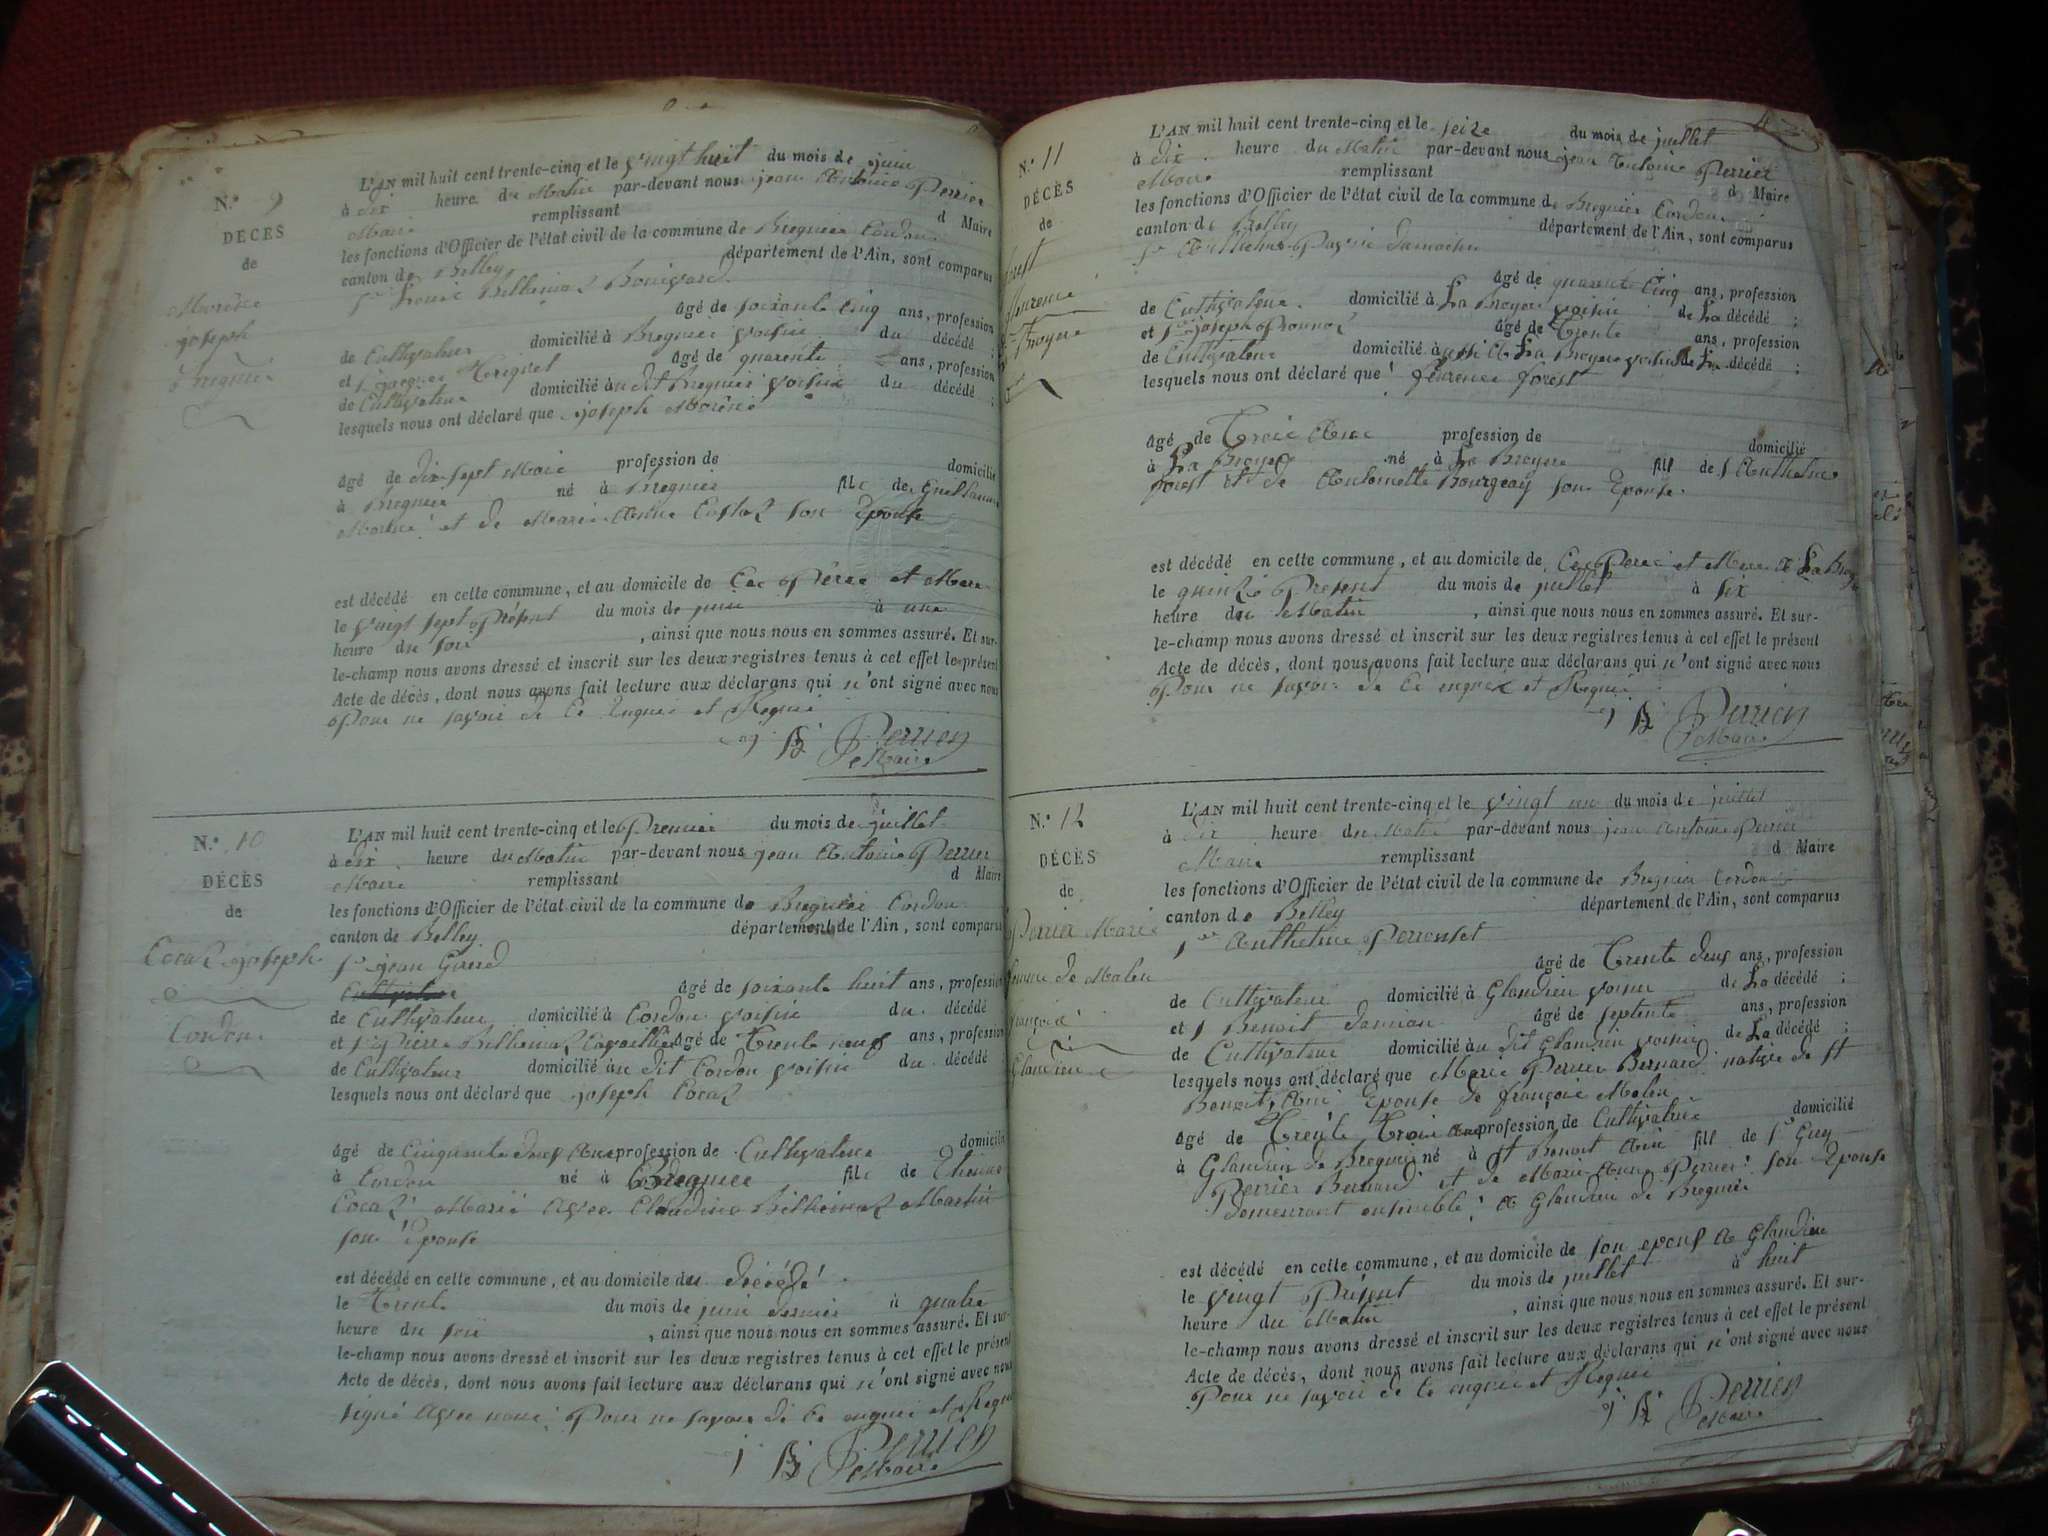 N.° 9
DÉCÈS
de
Morêse
joseph
Bregnier
L'AN mil huit cent trente-cinq et le vingt huit du mois de juin
à dix heure du Matin par-devant nous jean Antoine Perrier
Maire remplissant d Maire
les fonctions d'Officier de l'état civil de la commune de Bregnier Cordon
canton de Belley département de l'Ain, sont comparus
Sr Louis Bellemaz Bonivard
âgé de soixante Cinq ans, profession
de Cultivateur domicilié à Bregnier voisin du décédé ;
et Sr jacques âgé de quarente ans, profession
de Cultivateur domicilié au dit Bregnier voisin du décédé ;
lesquels nous ont déclaré que joseph
âgé de dix sept Mois profession de domicilié
à Bregnier né à Bregnier fils de Guillaume
et de Marie Anne son Epouse
est décédé en cette commune, et au domicile de Ces Père et Mere
le vingt sept Présent du mois de juin à une
heure du soir , ainsi que nous nous en sommes assuré. Et sur-
le-champ nous avons dressé et inscrit sur les deux registres tenus à cet effet le présent
Acte de décès, dont nous avons fait lecture aux déclarans qui n'ont signé avec nous
Pour ne savoir de Ce enquis et Requis
Perrier
Maire
N.° 10
DÉCÈS
de
Cocaz joseph
Cordon
L'AN mil huit cent trente-cinq et le Premier du mois de juillet
à dix heure du Matin par-devant nous jean Antoine Perrier
Maire remplissant d Maire
les fonctions d'Officier de l'état civil de la commune de Bregnier Cordon
canton de Belley département de l'Ain, sont comparus
Sr jean Girerd
âgé de soixante huit ans, profession
de Cultivateur domicilié à Cordon voisin du décédé
et Sr Pierre Bellemaz âgé de Trente neuf ans, profession
de Cultivateur domicilié au dit Cordon voisin du décédé
lesquels nous ont déclaré que joseph Cocaz
âgé de Cinquante deux Ans profession de Cultivateur domicilié
à Cordon né à Bregnier fils de Etienne
Cocaz Marié Avec Claudine Bellemaz Martin
son Epouse
est décédé en cette commune, et au domicile du décédé
le Trente du mois de juin dernier à quatre
heure du soir , ainsi que nous nous en sommes assuré. Et sur-
le-champ nous avons dressé et inscrit sur les deux registres tenus à cet effet le présent
Acte de décès, dont nous avons fait lecture aux déclarans qui n'ont signé avec nous
signé Avec nous Pour ne savoir de Ce enquis et Requis
Perrier
Maire
N.° 11
DÉCÈS
de
forest
fleurence
La Broyere
L'AN mil huit cent trente-cinq et le seize du mois de juillet
à dix heure du Matin par-devant nous jean Antoine Perrier
Maire remplissant d Maire
les fonctions d'Officier de l'état civil de la commune de Bregnier Cordon
canton de Belley département de l'Ain, sont comparus
Sr Anthelme
âgé de quarente Cinq ans, profession
de Cultivateur domicilié à La Broyere voisin de La décédé ;
et Sr joseph âgé de Trente ans, profession
de Cultivateur domicilié aussi A La Broyere voisin de La décédé ;
lesquels nous ont déclaré que fleurence forest
âgé de Trois Ans profession de domicilié
à La Broyere né à La Broyere fill de Sr Anthelme
forest et de Antoinette Bourgeay son Epouse
est décédé en cette commune, et au domicile de Ces Pere et Mere A La Broyere
le quinze Present du mois de juillet à six
heure du Matin , ainsi que nous nous en sommes assuré. Et sur-
le-champ nous avons dressé et inscrit sur les deux registres tenus à cet effet le présent
Acte de décès, dont nous avons fait lecture aux déclarans qui n'ont signé avec nous
Pour ne savoir de Ce enquis et Requis
Perrier
Maire
N.° 12
DÉCÈS
de
Perrier Marie
femme de Molin
françois
Glandieu
L'AN mil huit cent trente-cinq et le vingt un du mois de juillet
à dix heure du Matin par-devant nous jean Antoine Perrier
Maire remplissant d Maire
les fonctions d'Officier de l'état civil de la commune de Bregnier Cordon
canton de Belley département de l'Ain, sont comparus
Sr Anthelme Perronset
âgé de Trente deux ans, profession
de Cultivateur domicilié à Glandieu voisin de La décédé ;
et S Benoit Damian âgé de septente ans, profession
de Cultivateur domicilié au dit Glandieu voisin de La décédé ;
lesquels nous ont déclaré que Marie Perrier Bernard native de St
Benoit, Epouse de françois Molin
âgé de Trente Trois Ans profession de Cultivatrice domicilié
à Glandieu de Bregnier né à St Benoit fill de Sr Guy
Perrier Bernard et de Marie Anne Perrier son Epouse
demeurant ensemble A Glandieu de Bregnier
est décédé en cette commune, et au domicile de son epoux A Glandieu
le vingt Présent du mois de juillet à huit
heure du Matin , ainsi que nous nous en sommes assuré. Et sur-
le-champ nous avons dressé et inscrit sur les deux registres tenus à cet effet le présent
Acte de décès, dont nous avons fait lecture aux déclarans qui n'ont signé avec nous
Pour ne savoir de Ce enquis et Requis
Perrier
Maire